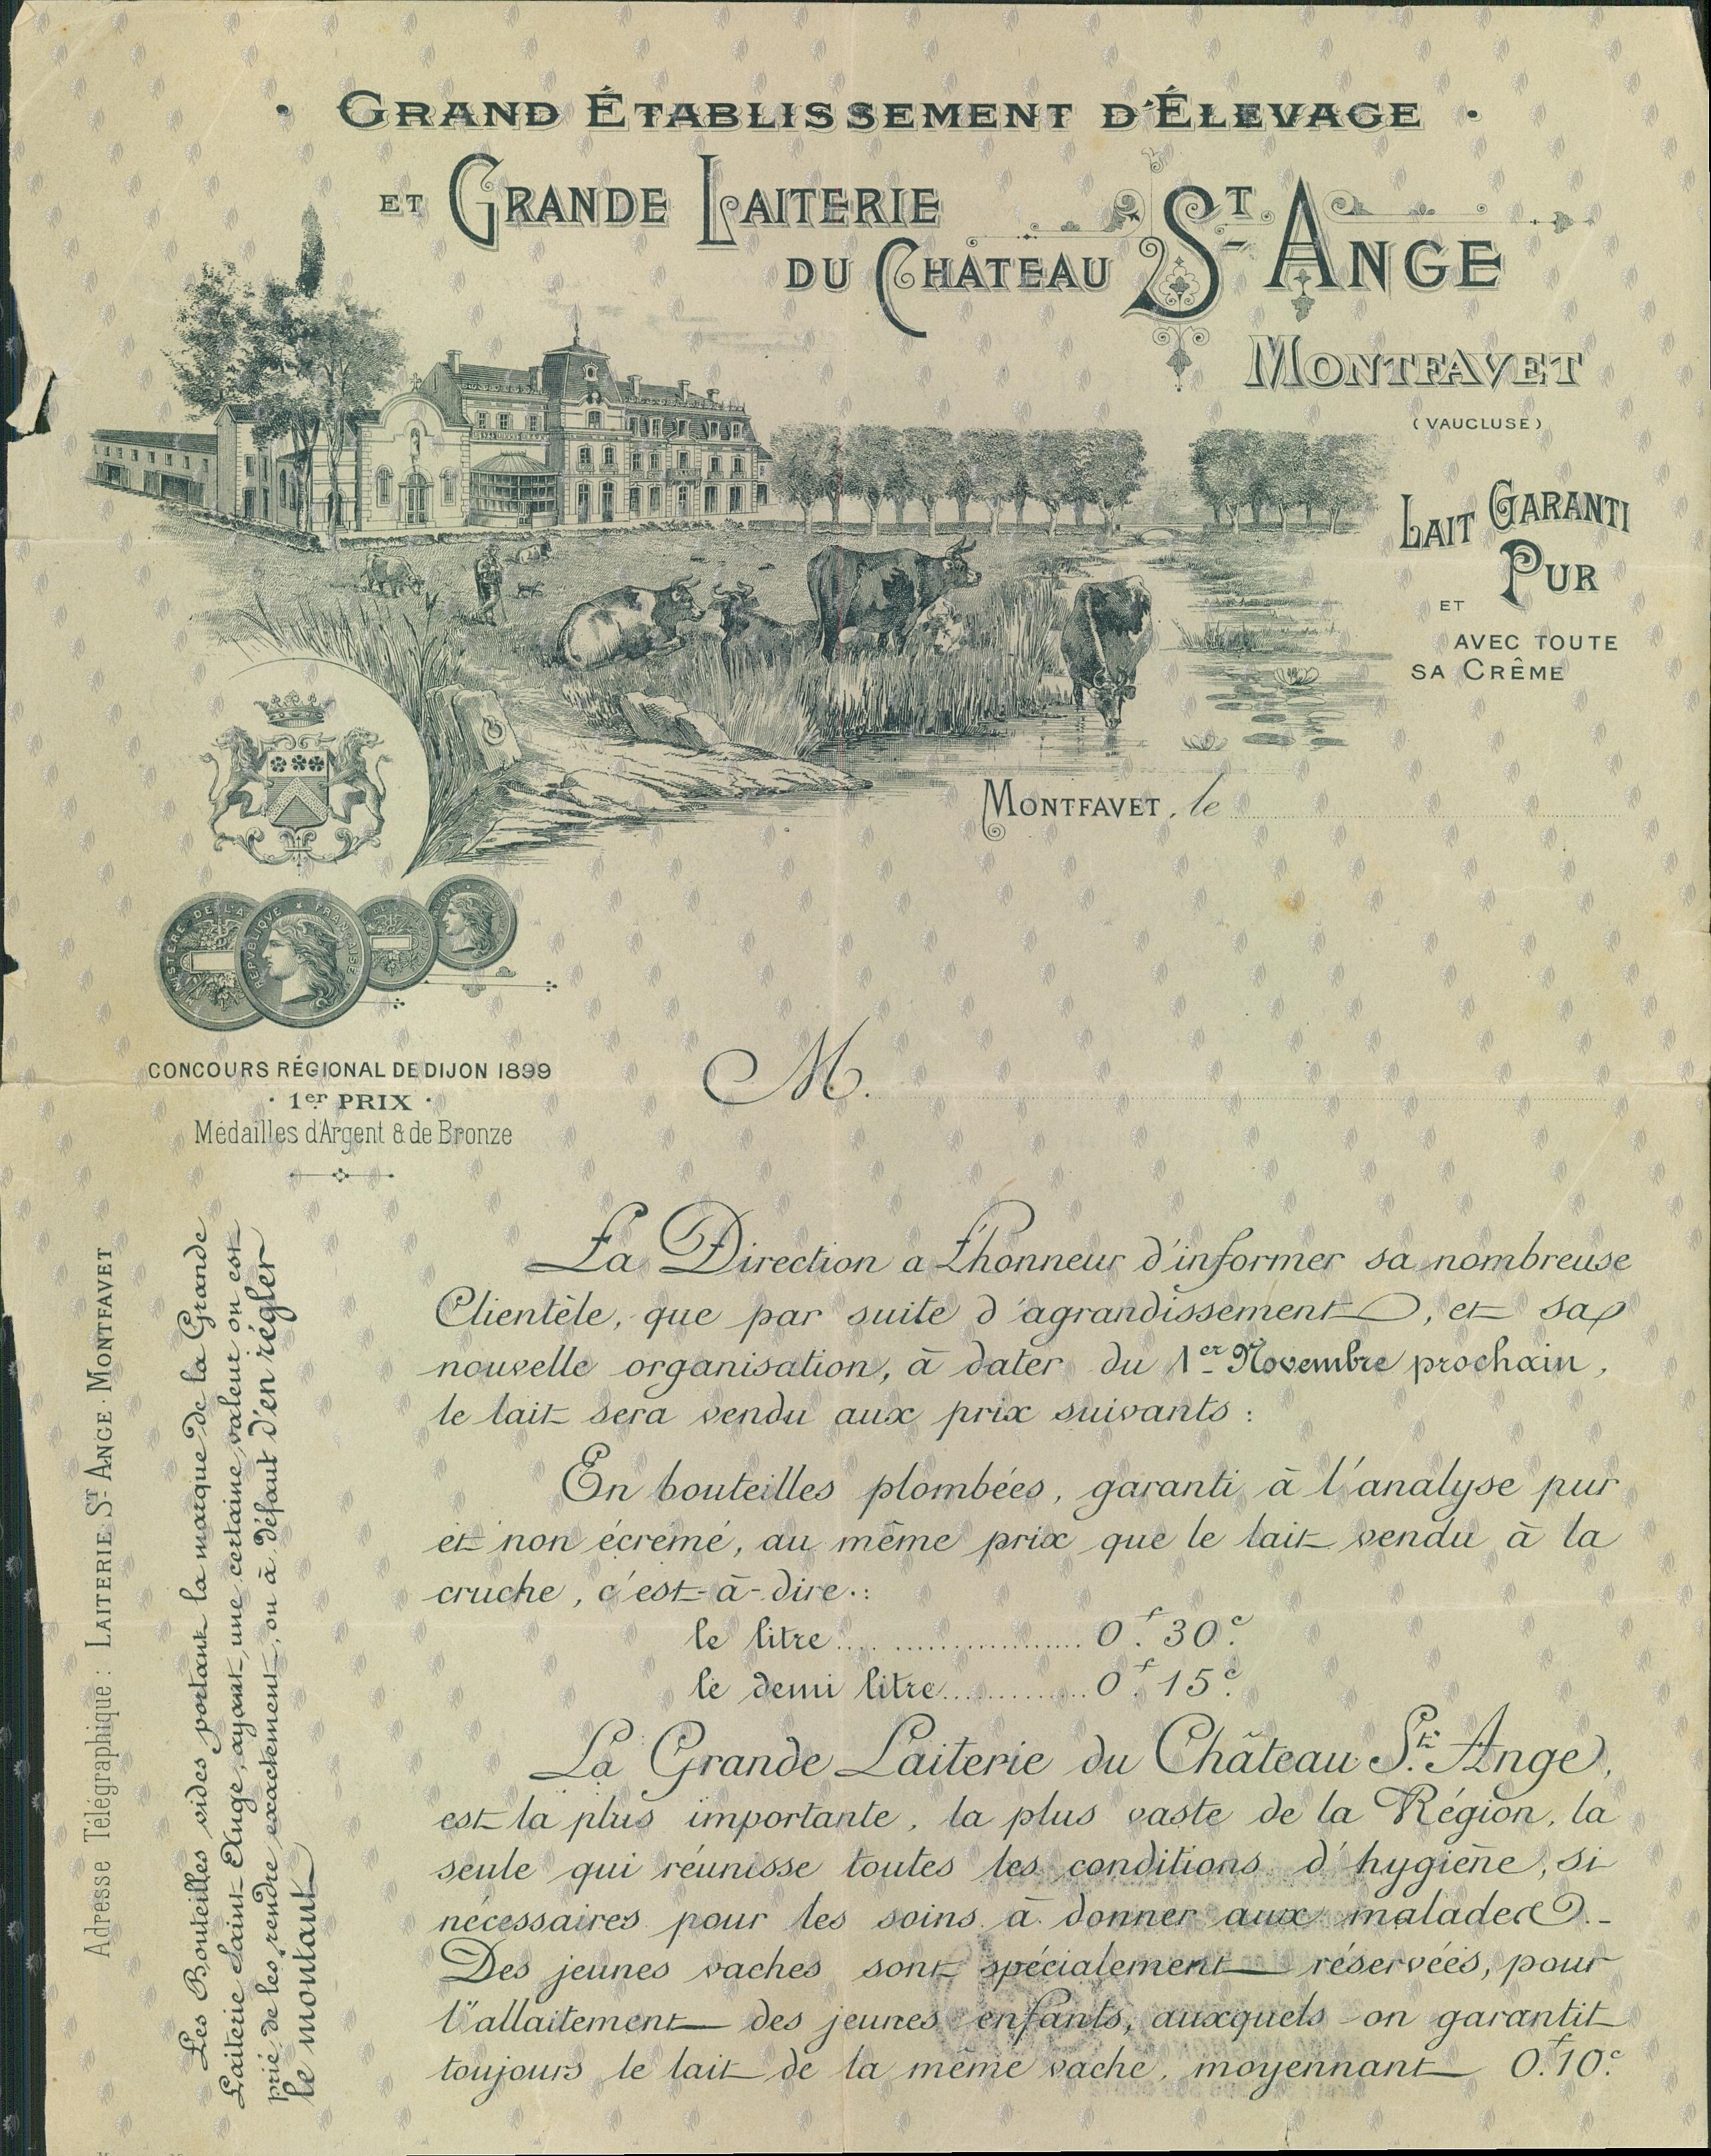 GRAND ÉTABLISSEMENT D'ÉLEVAGE
ET GRANDE LAITERIE
DU CHÂTEAU ST. ANGE
MONTFAVET
(VAUCLUSE)
LAIT GARANTI
PUR
ET
AVEC TOUTE
SA CRÊME
MONTFAVET, le
MINISTÈRE DE L'A
REPVBLIQVE * FRANÇAISE
CONCOURS RÉGIONAL DE DIJON 1899
· 1er PRIX ·
Médailles d'Argent & de Bronze
M.
La Direction a l'honneur d'informer sa nombreuse
Clientèle, que par suite d'agrandissement, et sa
nouvelle organisation, à dater du 1er Novembre prochain,
le lait sera vendu aux prix suivants :
En bouteilles plombées, garanti à l'analyse pur
et non écrémé, au même prix que le lait vendu à la
cruche, c'est-à-dire :
le litre .................... 0.f 30.c
le demi litre ............. 0.f 15.c
La Grande Laiterie du Château St. Ange,
est la plus importante, la plus vaste de la Région, la
seule qui réunisse toutes les conditions d'hygiène, si
nécessaires pour les soins à donner aux malades.-
Des jeunes vaches sont spécialement réservées, pour
l'allaitement des jeunes enfants, auxquels on garantit
toujours le lait de la même vache, moyennant 0.f10.c
Adresse Télégraphique : LAITERIE ST ANGE · MONTFAVET
Les Bouteilles vides portant la marque de la Grande
Laiterie Saint-Ange, ayant une certaine valeur on est
prié de les rendre exactement, ou à défaut d'en régler
le montant